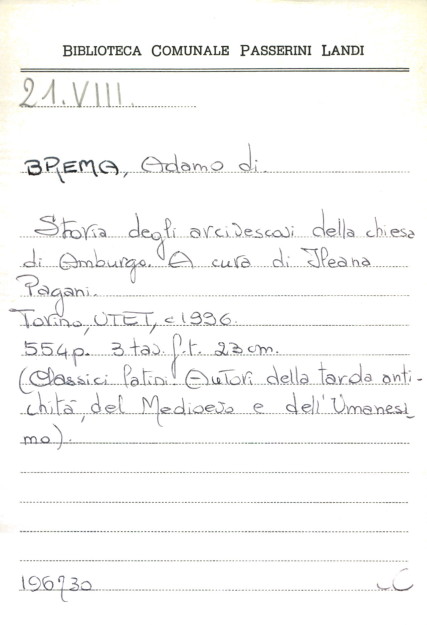 BIBLIOTECA COMUNALE PASSERINI LANDI
21.VIII.
BREMA, Adamo di.
Storia degli arcivescovi della chiesa
di Amburgo. A cura di Ileana
Pagani.
Torino, UTET, c1996.
554p. 3 tav. f.t. 23 cm.
(Classici latini. Autori della tarda anti-
chità, del Medioevo e dell'Umanesi_
mo).
196730